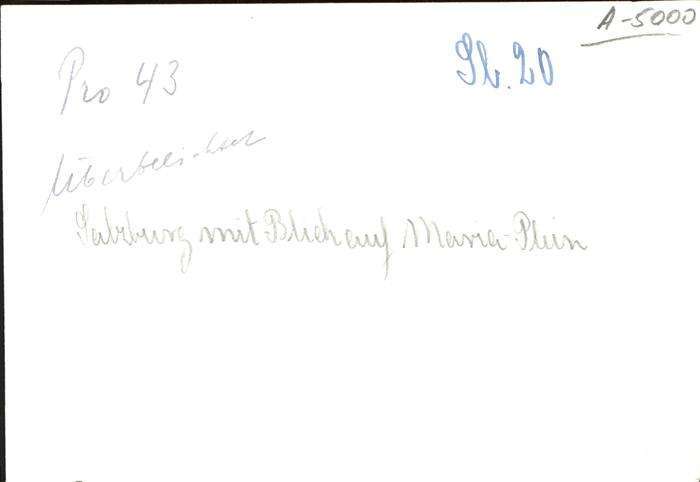 A-5000
Pro 43
Sb. 20
Überbelichtet
Salzburg mit Blick auf Maria-Plain